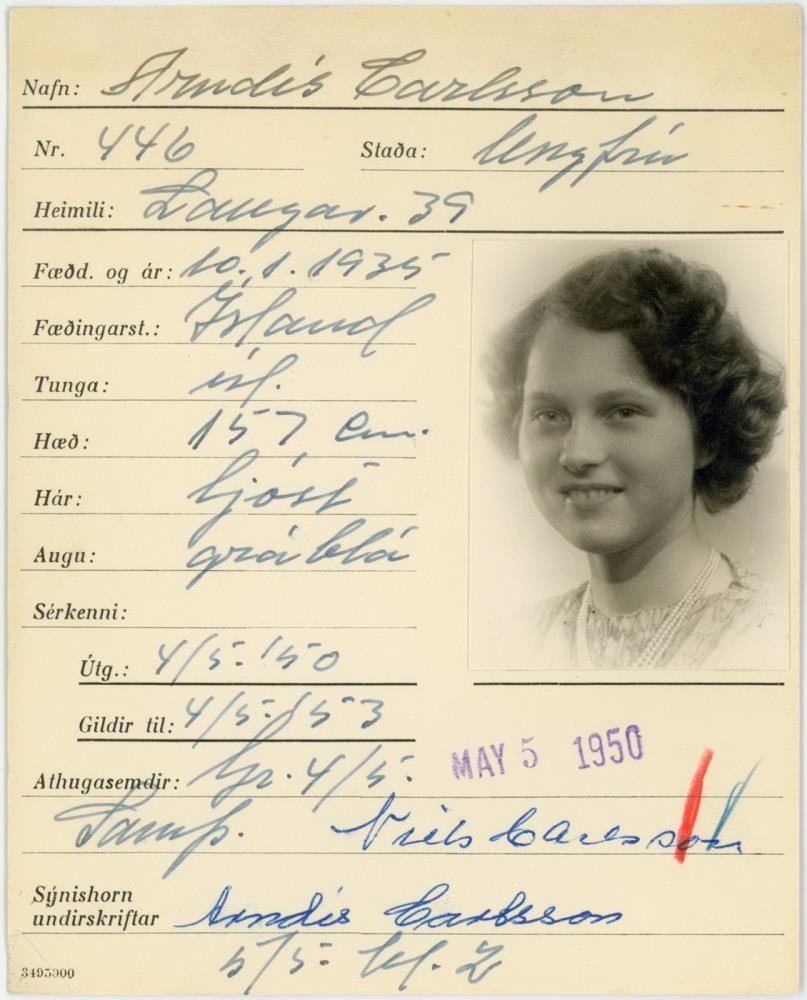 Nafn: Arndís Carlsson
Nr. 446 Staða: Ungfrú
Heimili: Laugav. 39
Fæðd. og ár: 10.1.1935
Fæðingarst.: Ísland
Tunga: ísl.
Hæð: 157 cm.
Hár: ljóst
Augu: gráblá
Sérkenni:
Útg.: 4/5.'50
Gildir til: 4/5.'53
Athugasemdir: 4/5. MAY 5 1950
Samþ. Niels Carlsson
Sýnishorn
undirskriftar Arndís Carlsson
5/5. kl. 2
3495900